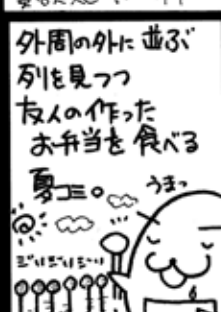 外周の外に並ぶ
列を見つつ
友人の作った
お弁当を食べる
夏コミ。
うまっ
ジリジリジリ